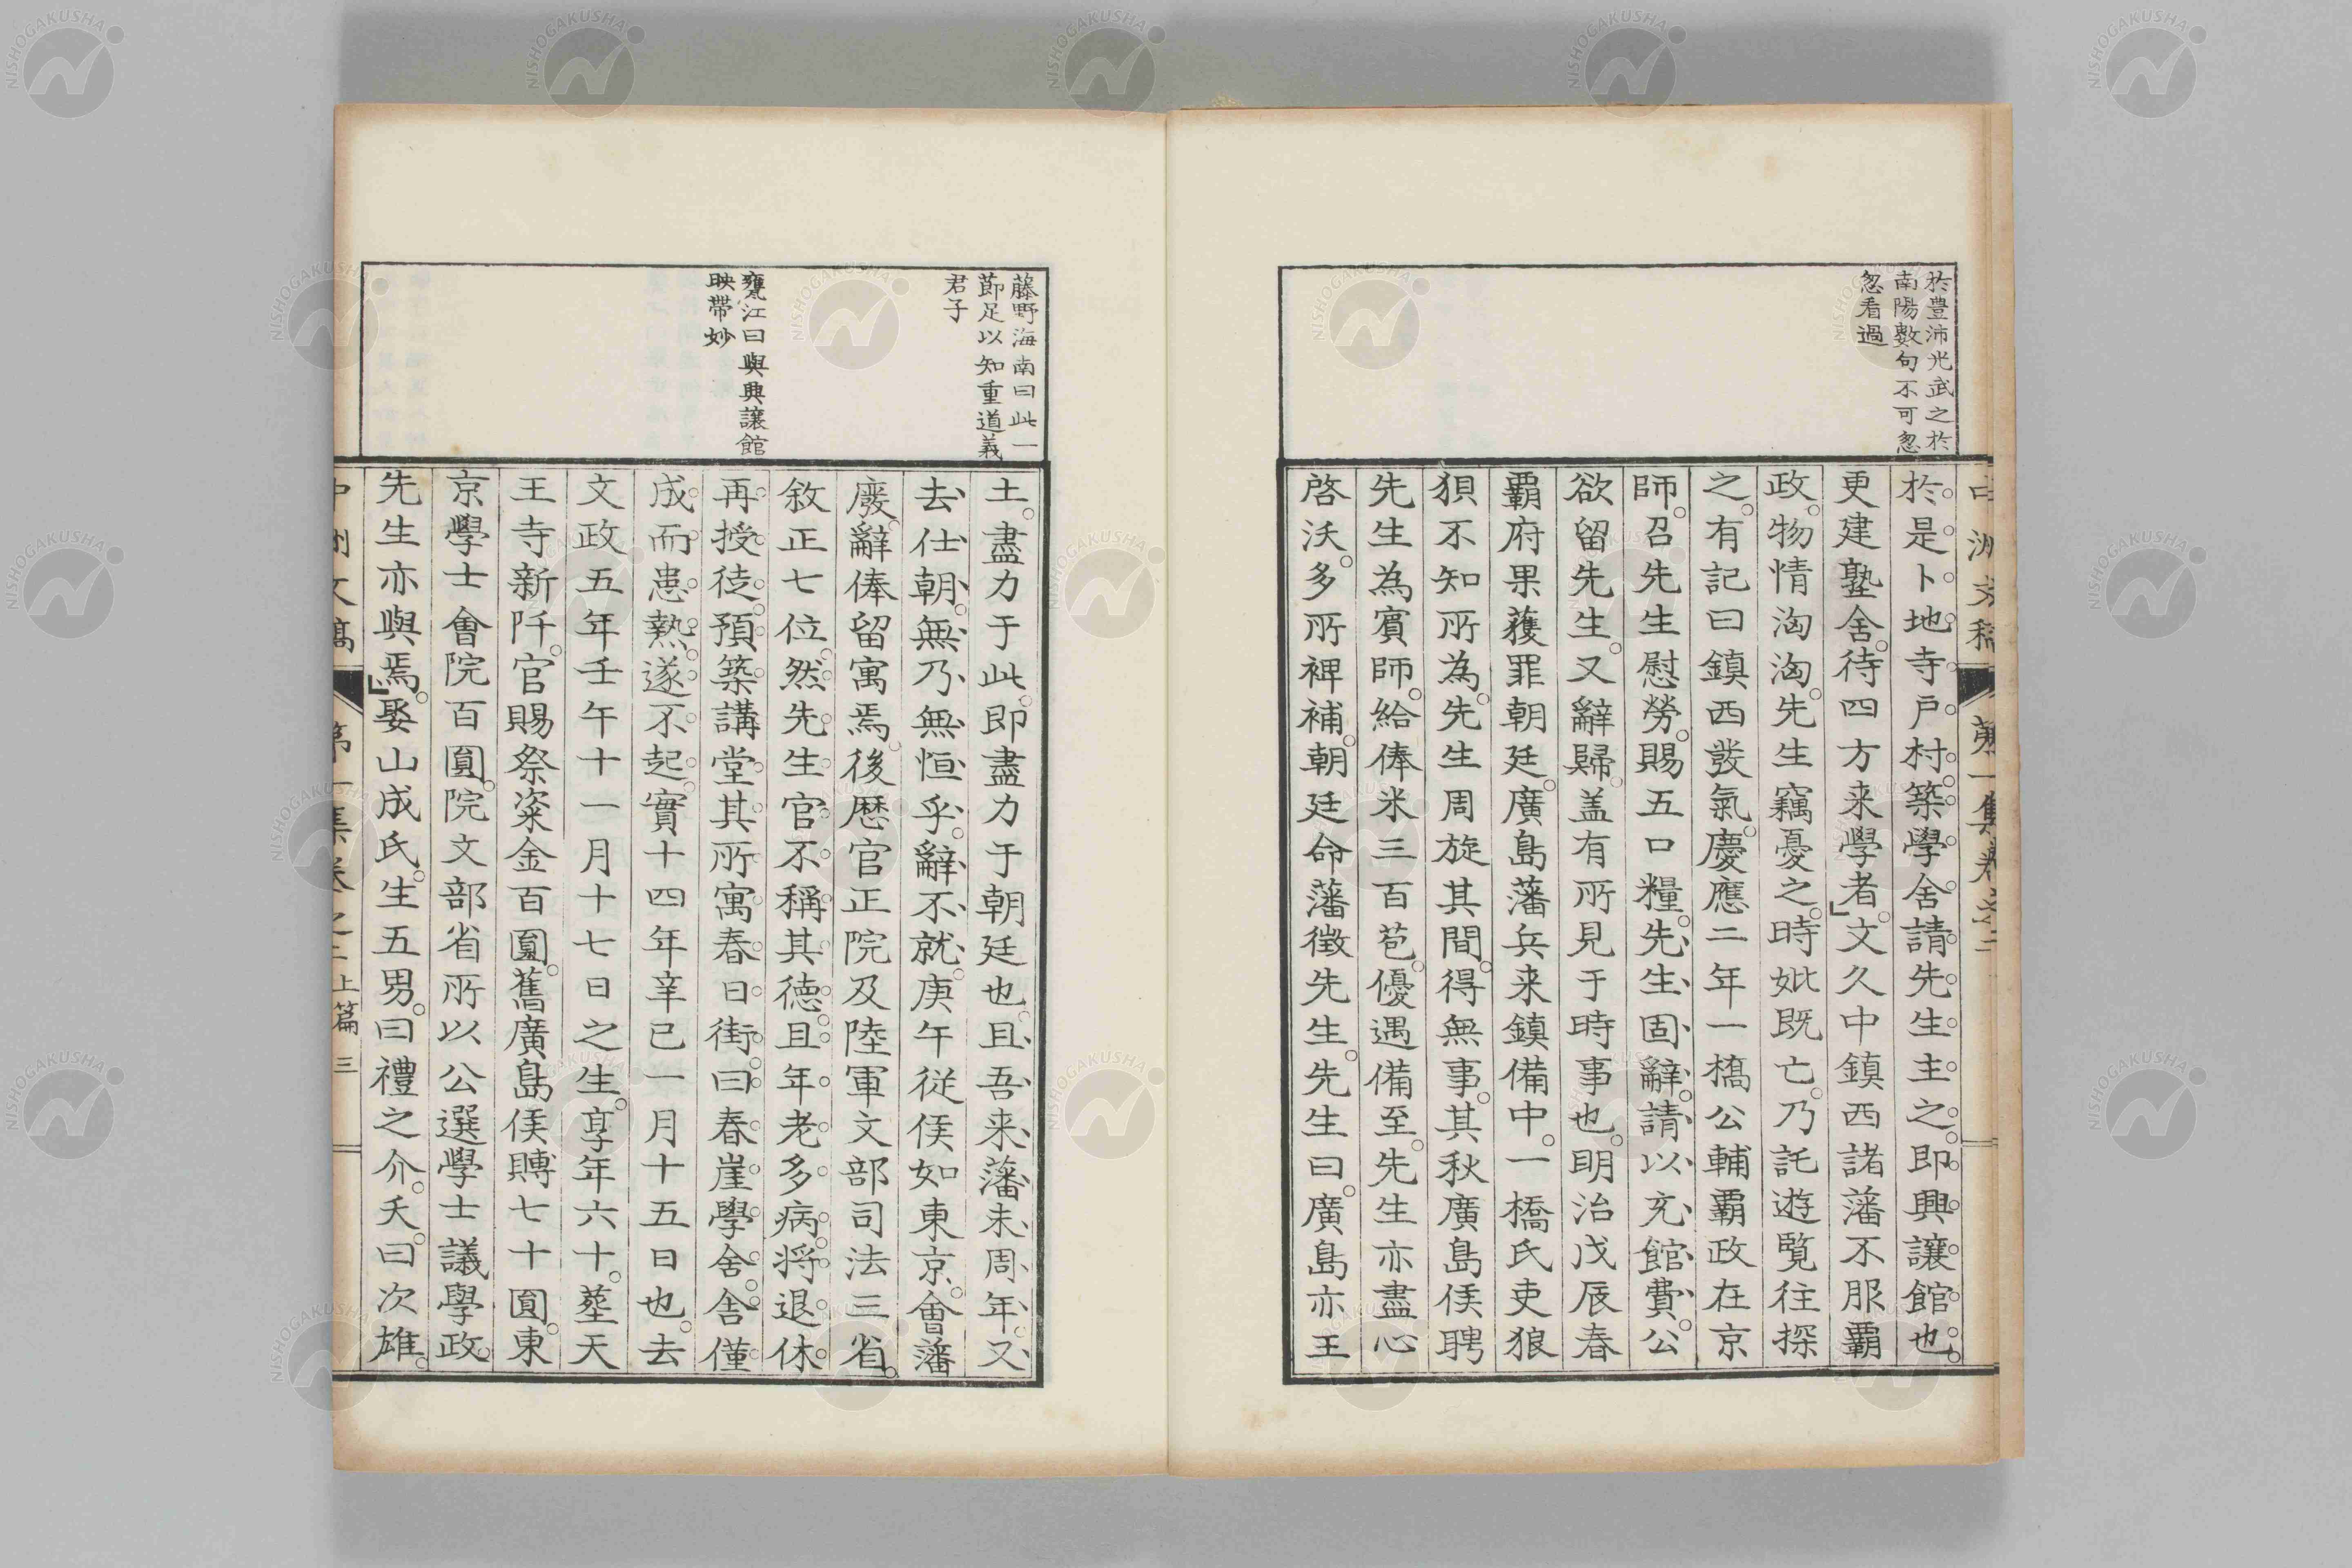 於豊沛光武之於
南陽數句不可忽
忽看過
於是卜地寺戸村築學舍請先生主之即興讓館也
更建塾舍待四方来學者文久中鎮西諸藩不服霸
政物情洶洶先生竊憂之時妣既亡乃託遊覧往探
之有記曰鎮西發氣慶應二年一橋公輔霸政在京
師召先生慰勞賜五口糧先生固辭請以充館費公
欲留先生又辭歸盖有所見于時事也明治戊辰春
霸府果獲罪朝廷廣島藩兵来鎮備中一橋氏吏狼
狽不知所為先生周旋其間得無事其秋廣島侯聘
先生為賓師給俸米三百苞優遇備至先生亦盡心
啓沃多所裨補朝廷命藩徴先生先生曰廣島亦王
藤野海南曰此一
莭足以知重道義
君子
甕江曰與興讓館
映帶妙
土盡力于此即盡力于朝廷也且吾来藩未周年又
去仕朝無乃無恒乎辭不就庚午従侯如東京會藩
廢辭俸留寓焉後歴官正院及陸軍文部司法三省
敘正七位然先生官不稱其德且年老多病将退休
再授徒預築講堂其所寓春日街曰春崖學舍舍僅
成而患熱遂不起實十四年辛巳一月十五日也去
文政五年壬午十一月十七日之生享年六十塟天
王寺新阡官賜祭粢金百圓舊廣島侯賻七十圓東
京學士會院百圓院文部省所以公選學士議學政
先生亦與焉娶山成氏生五男曰禮之介夭曰次雄
中洲文稿 第一集卷之二 上篇 三